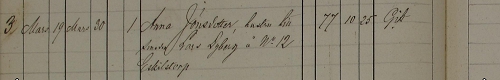 3 Mars 19 Mars 30 1 Anna Jönsdotter, hustru till 77 10 25 Gift
Lars Nyberg å No 12
Eskilstorp